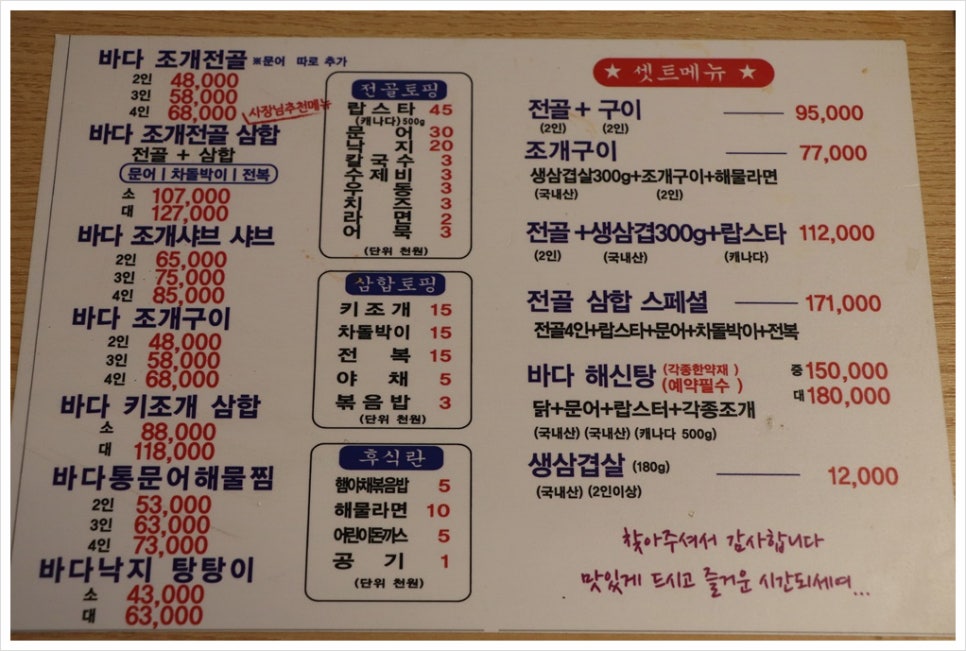 바다 조개전골 ※문어 따로 추가
2인 48,000
3인 58,000
4인 68,000
사장님추천메뉴
바다 조개전골 삼합
전골 + 삼합
문어 | 차돌박이 | 전복
소 107,000
대 127,000
바다 조개샤브 샤브
2인 65,000
3인 75,000
4인 85,000
바다 조개구이
2인 48,000
3인 58,000
4인 68,000
바다 키조개 삼합
소 88,000
대 118,000
바다통문어해물찜
2인 53,000
3인 63,000
4인 73,000
바다낙지 탕탕이
소 43,000
대 63,000
전골토핑
랍스타 45
(캐나다)500g
문어 30
낙지 20
칼국수 3
수제비 3
우동 3
치즈 3
라면 2
어묵 3
(단위 천원)
삼합토핑
키조개 15
차돌박이 15
전복 15
야채 5
볶음밥 3
(단위 천원)
후식란
햄야채볶음밥 5
해물라면 10
어린이돈까스 5
공기 1
(단위 천원)
★ 셋트메뉴 ★
전골 + 구이 95,000
(2인) (2인)
조개구이 77,000
생삼겹살300g+조개구이+해물라면
(국내산) (2인)
전골+생삼겹300g+랍스타 112,000
(2인) (국내산) (캐나다)
전골 삼합 스페셜 171,000
전골4인+랍스타+문어+차돌박이+전복
바다 해신탕 (각종한약재) 중 150,000
(예약필수) 대 180,000
닭+문어+랍스터+각종조개
(국내산) (국내산) (캐나다 500g)
생삼겹살 (180g) 12,000
(국내산) (2인이상)
찾아주셔서 감사합니다
맛있게 드시고 즐거운 시간되세여...